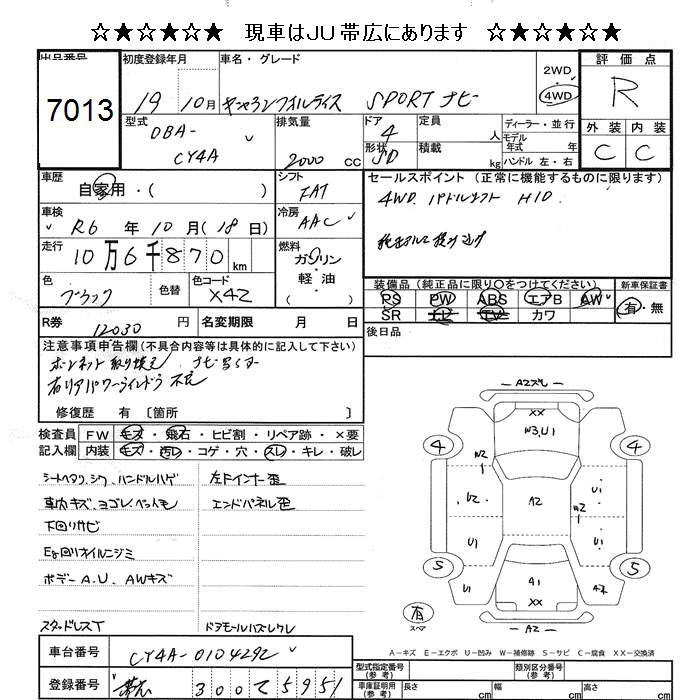 ☆★☆★☆★ 現車はJU帯広にあります ☆★☆★☆★
出品番号 初度登録年月 車名・グレード 評価点
7013 19 10月 ギャランフォルティス SPORT ナビー 2WD・4WD R
型式 排気量 ドア 定員 人 ディーラー・並行 外装 内装
DBA-CY4A 2000 CC 4 形状 SD 積載 kg モデル年式 年 ハンドル 左・右 C C
車歴 自家用・( ) シフト FAT セールスポイント(正常に機能するものに限ります)
車検 R6 年 10 月(18 日) 冷房 AAC 4WD パドルシフト HID
走行 10万6千870 km 燃料 ガソリン・軽油 ( )
色 ブラック 色替 色コード X42 装備品(純正品に限り〇をつけてください) 新車保証書
PS PW ABS エアB AW 有・無
SR ナビ TV カワ
R券 12030 円 名変期限 月 日 後日品
注意事項申告欄(不具合内容等は具体的に記入して下さい)
右リアパワーウインドウ 不良
修復歴 有〔箇所 〕
検査員記入欄 FW キズ・飛石・ヒビ割・リペア跡・×要
内装 キズ・汚レ・コゲ・穴・スレ・キレ・破レ
シートヘタリ、シワ、ハンドルハゲ 左Fインナー歪
車内キズ、ヨゴレ、ペット毛 エンドパネル歪
下回りサビ
Eg回りオイルニジミ
ボデーA.U、AWキズ
スタッドレスT ドアモールハズレ
A2ズレ
XX
W3,U1
4 W2 4
U2 A2 U1
W2
U1 U1
5 5
U1 A1 A2
XX
有 スペア A2
A−キズ E−エクボ U−凹み W−補修跡 S−サビ C−腐食 XX−交換済
車台番号 CY4A-0104292 型式指定番号(参考) 類別区分番号(参考)
登録番号 帯広 300 て 5951 車庫証明用(参考) 長さ cm 幅 cm 高さ cm